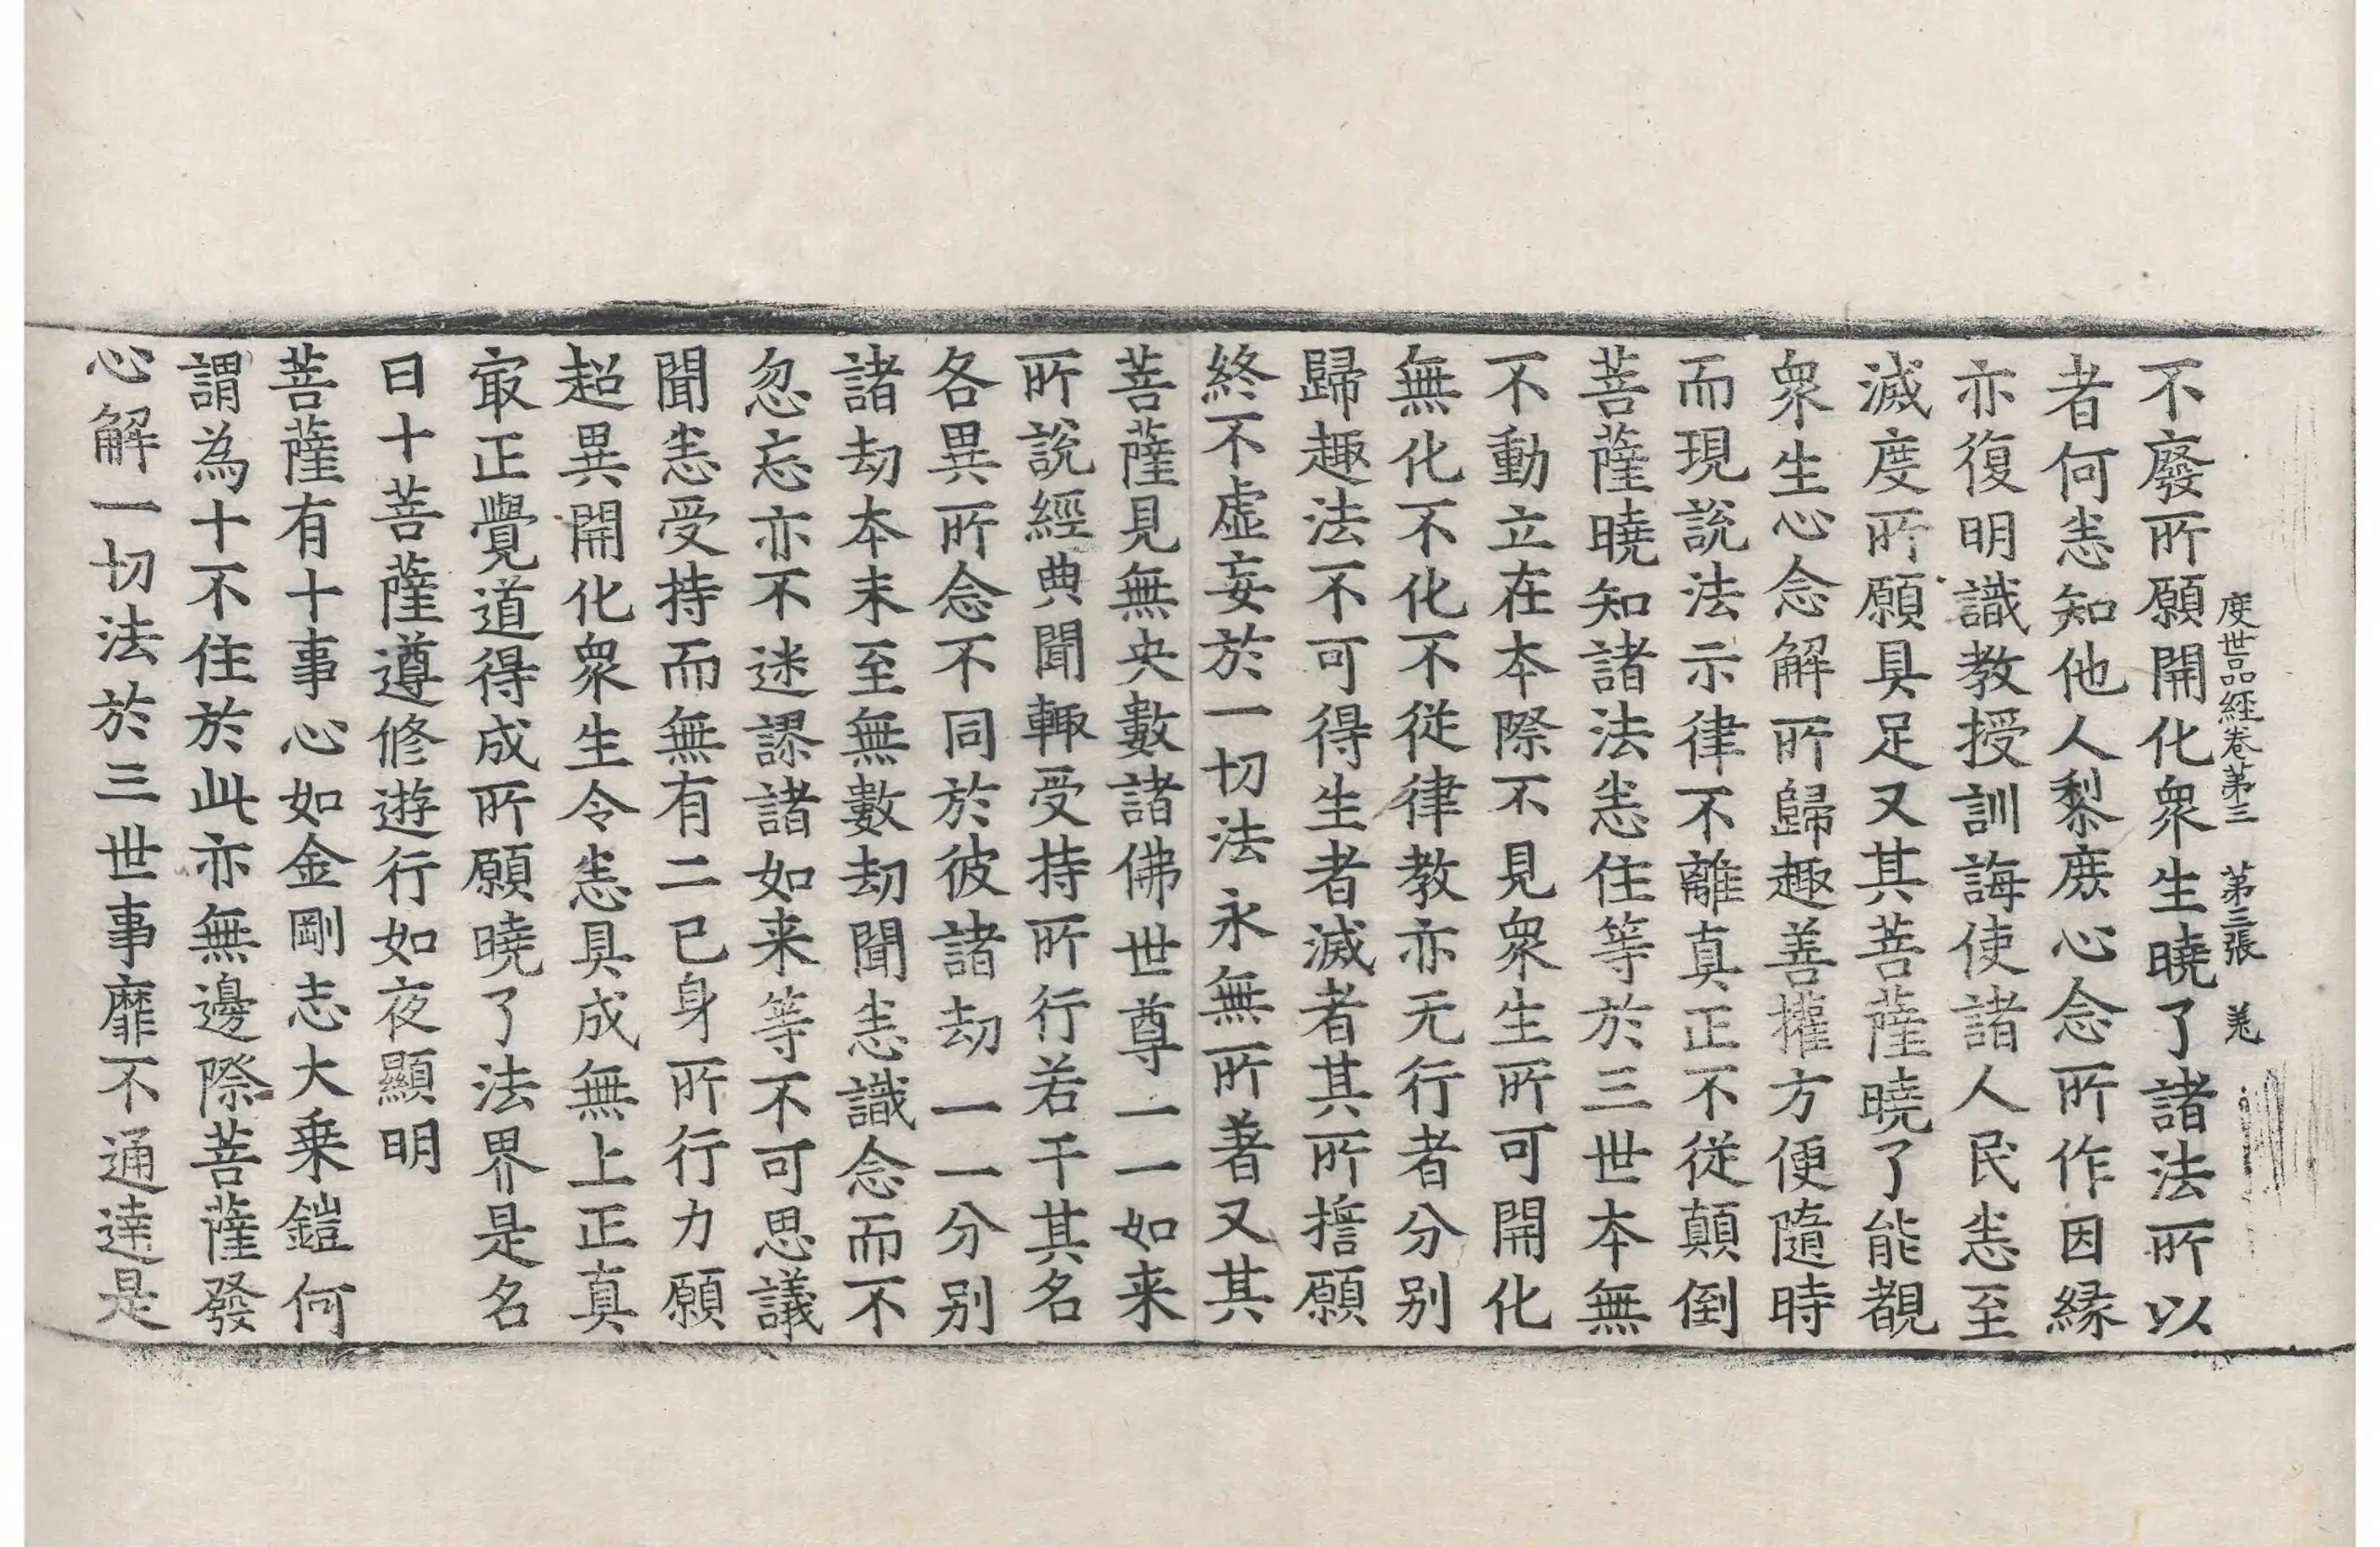 度世品經卷第三　第三張　羗
不廢所願開化衆生曉了諸法所以
者何恙知他人黎庶心念所作因縁
亦復明識教授訓誨使諸人民恙至
滅度所願具足又其菩薩曉了能覩
衆生心念解所歸趣善權方便隨時
而現說法示律不離真正不從顛倒
菩薩曉知諸法恙住等於三世本無
不動立在本際不見衆生所可開化
無化不化不從律教亦无行者分别
歸趣法不可得生者滅者其所擔願
終不虛妄於一切法永無所著又其
菩薩見無央數諸佛世尊一一如来
所說經典聞輙受持所行若干其名
各異所念不同於彼諸劫一一分别
諸劫本末至無數劫聞恙識念而不
忽忘亦不迷謬諸如来等不可思議
聞恙受持而無有二已身所行力願
超異開化衆生令恙具成無上正真
㝡正覺道得成所願曉了法界是名
曰十菩薩遵修遊行如夜顯明
菩薩有十事心如金剛志大乗鎧何
謂為十不住於此亦無邊際菩薩發
心解一切法於三世事靡不通達是